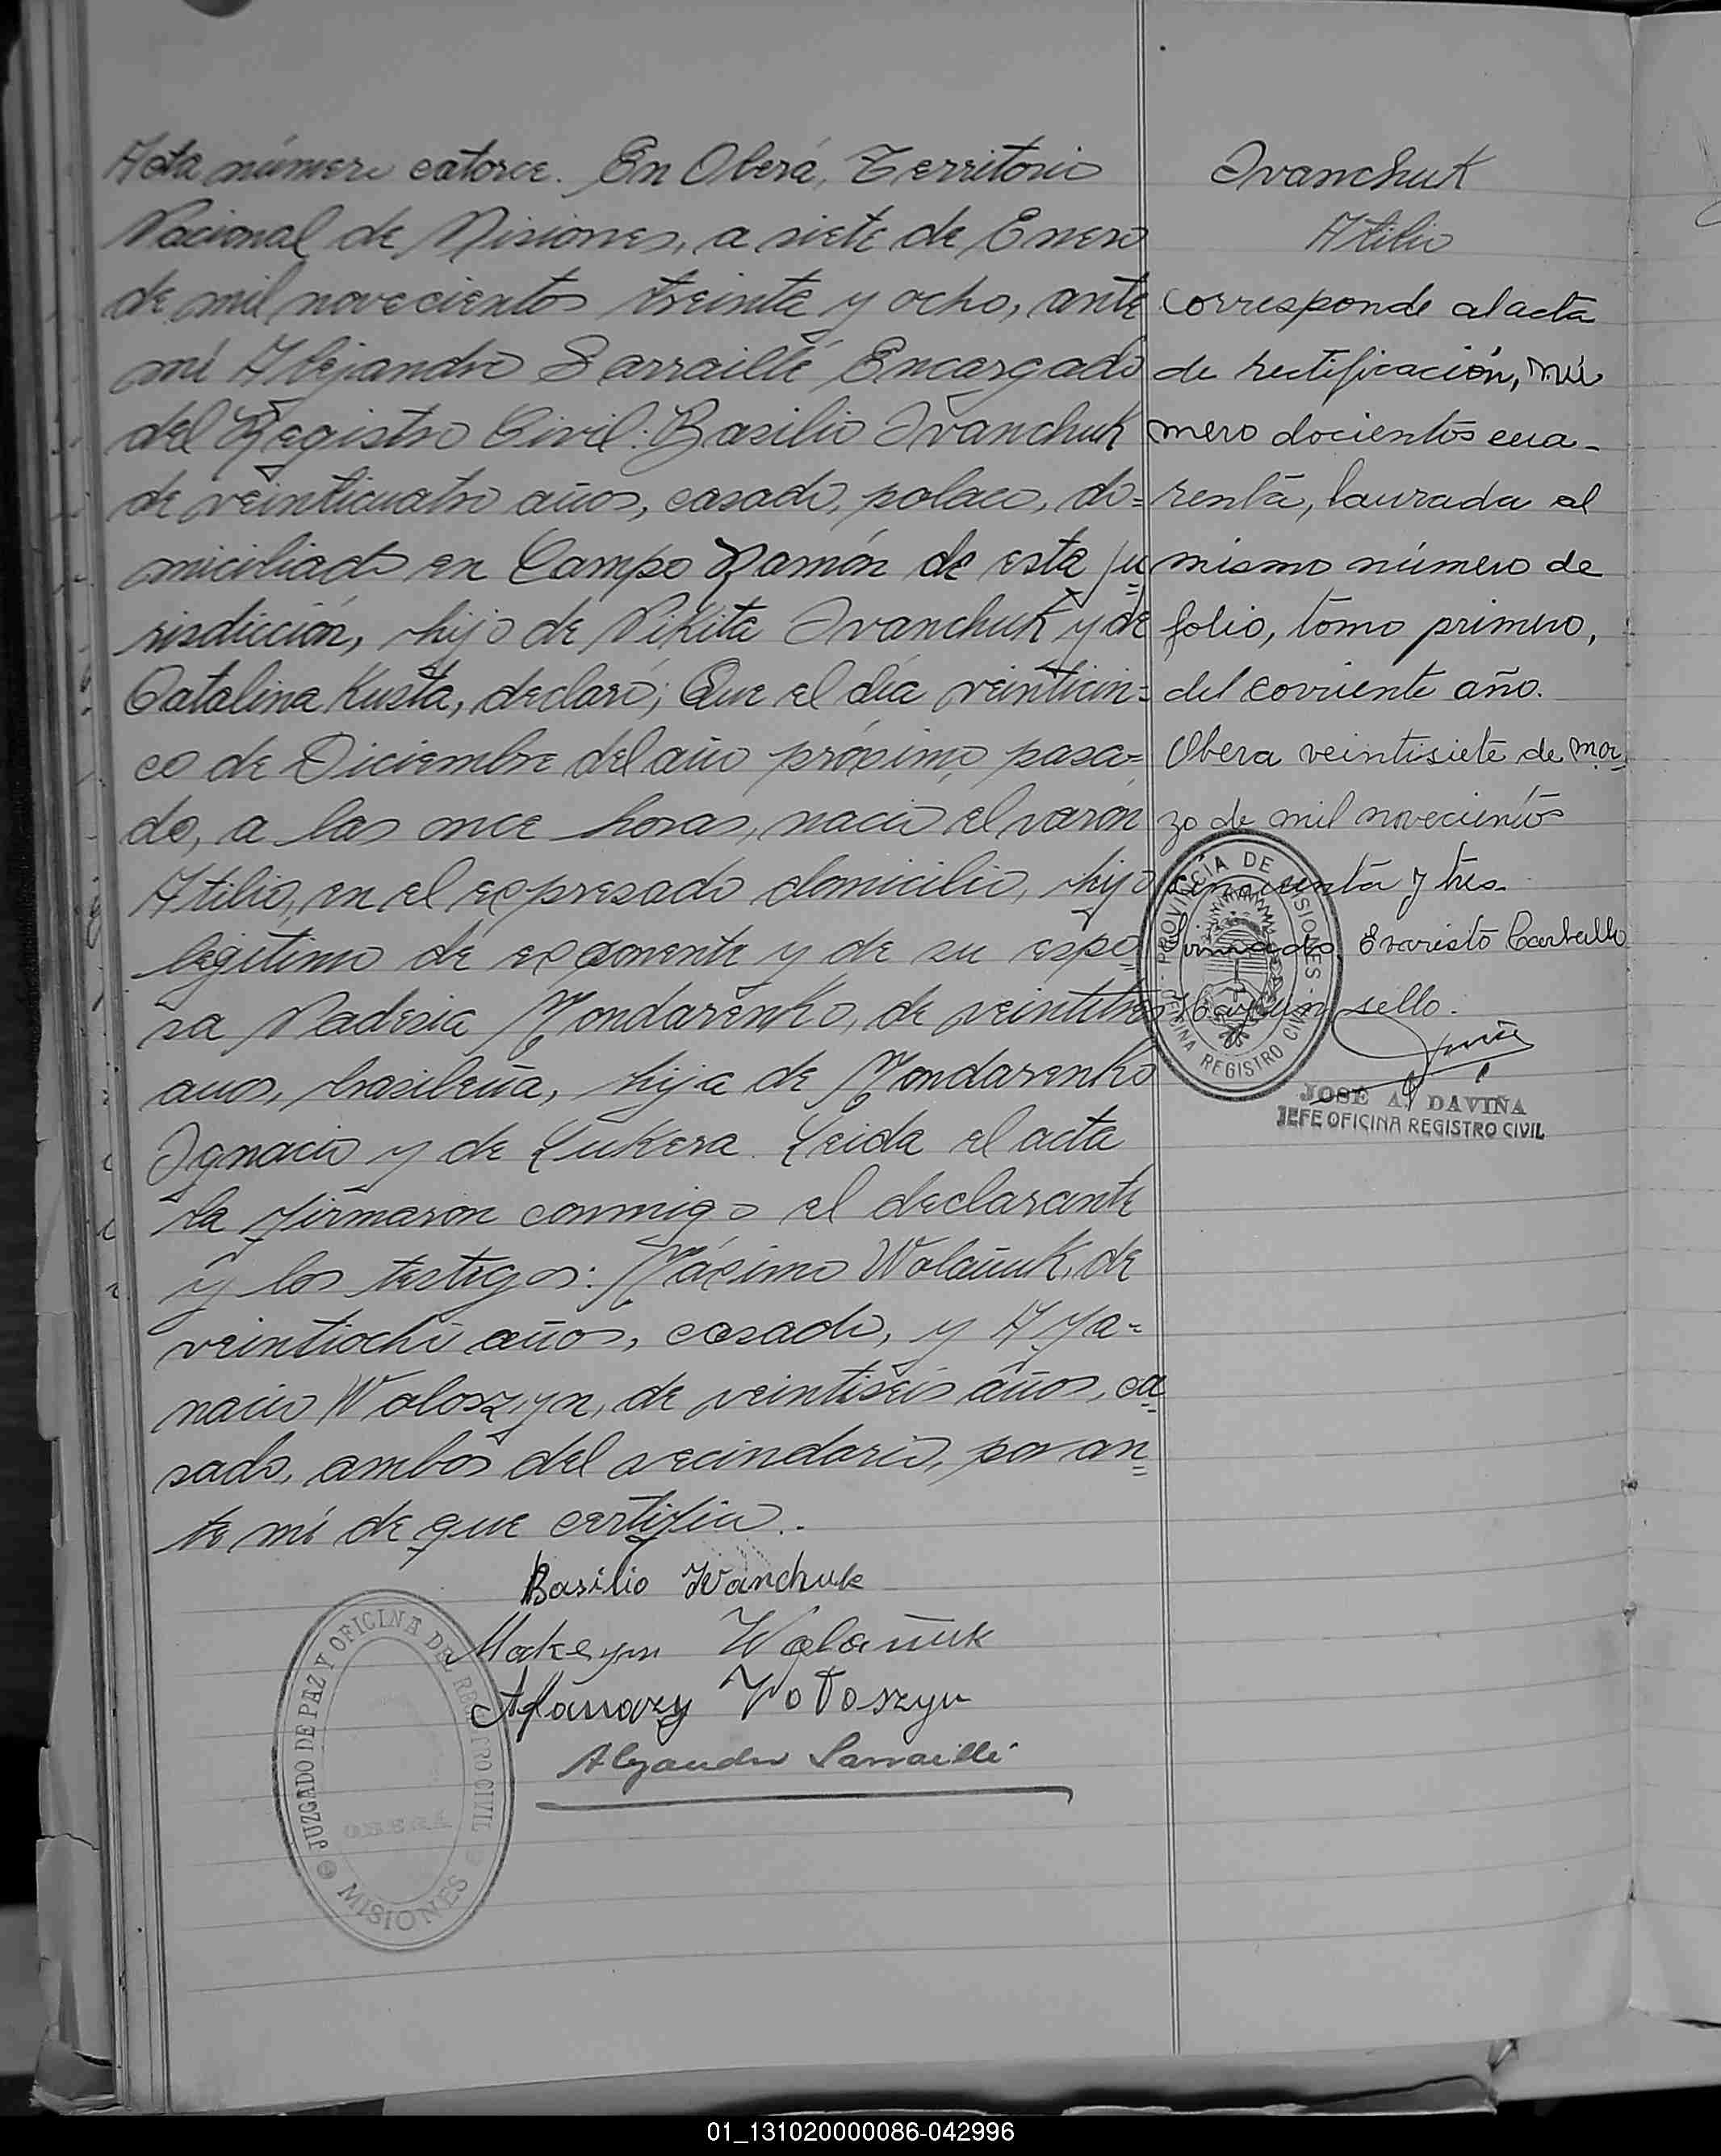 Acta número catorce. En Oberá, Territorio
Nacional de Misiones, a siete de Enero
de mil novecientos treinta y ocho, ante
mí Alejandro Sarraillé Encargado
del Registro Civil: Basilio Ivanchuk
de veinticuatro años, casado, polaco, do=
miciliado en Campo Ramón de esta ju
risdicción, hijo de Nikita Ivanchuk y de
Catalina Kusta, declaró; Que el día veinticin=
co de Diciembre del año próximo pasa=
do, a las once horas, nació el varón
Atilio, en el expresado domicilio, hijo
legítimo de exponente y de su espo
sa Nadesia Mondarenko, de veintitres
años, brasileña, hija de Mondarenko
Ignacio y de Lukera. Leida el acta
la firmaron conmigo el declarante
y los testigos: Máximo Wolañuk, de
veintiocho años, casado, y Afa=
nacio Woloszyn, de veintiseis años, ca
sado, ambos del vecindario, por an
te mí de que certifico.
Basilio Ivanchuk
Maksym Wolañuk
Afanazy Wołoszyn
Alejandro Sarraillé
JUZGADO DE PAZ Y OFICINA DEL REGISTRO CIVIL
OBERÁ
MISIONES
Ivanchuk
Atilio
corresponde al acta
de rectificación, nú
mero docientos cua-
renta, laurada al
mismo número de
folio, tomo primero,
del corriente año.
Obera veintisiete de mar
zo de mil novecientos
cincuenta y tres.
Firmado Evaristo Carballo
Hay un sello.
PROVINCIA DE MISIONES
OFICINA REGISTRO CIVIL
JOSÉ A. DAVIÑA
JEFE OFICINA REGISTRO CIVIL
01_131020000086-042996